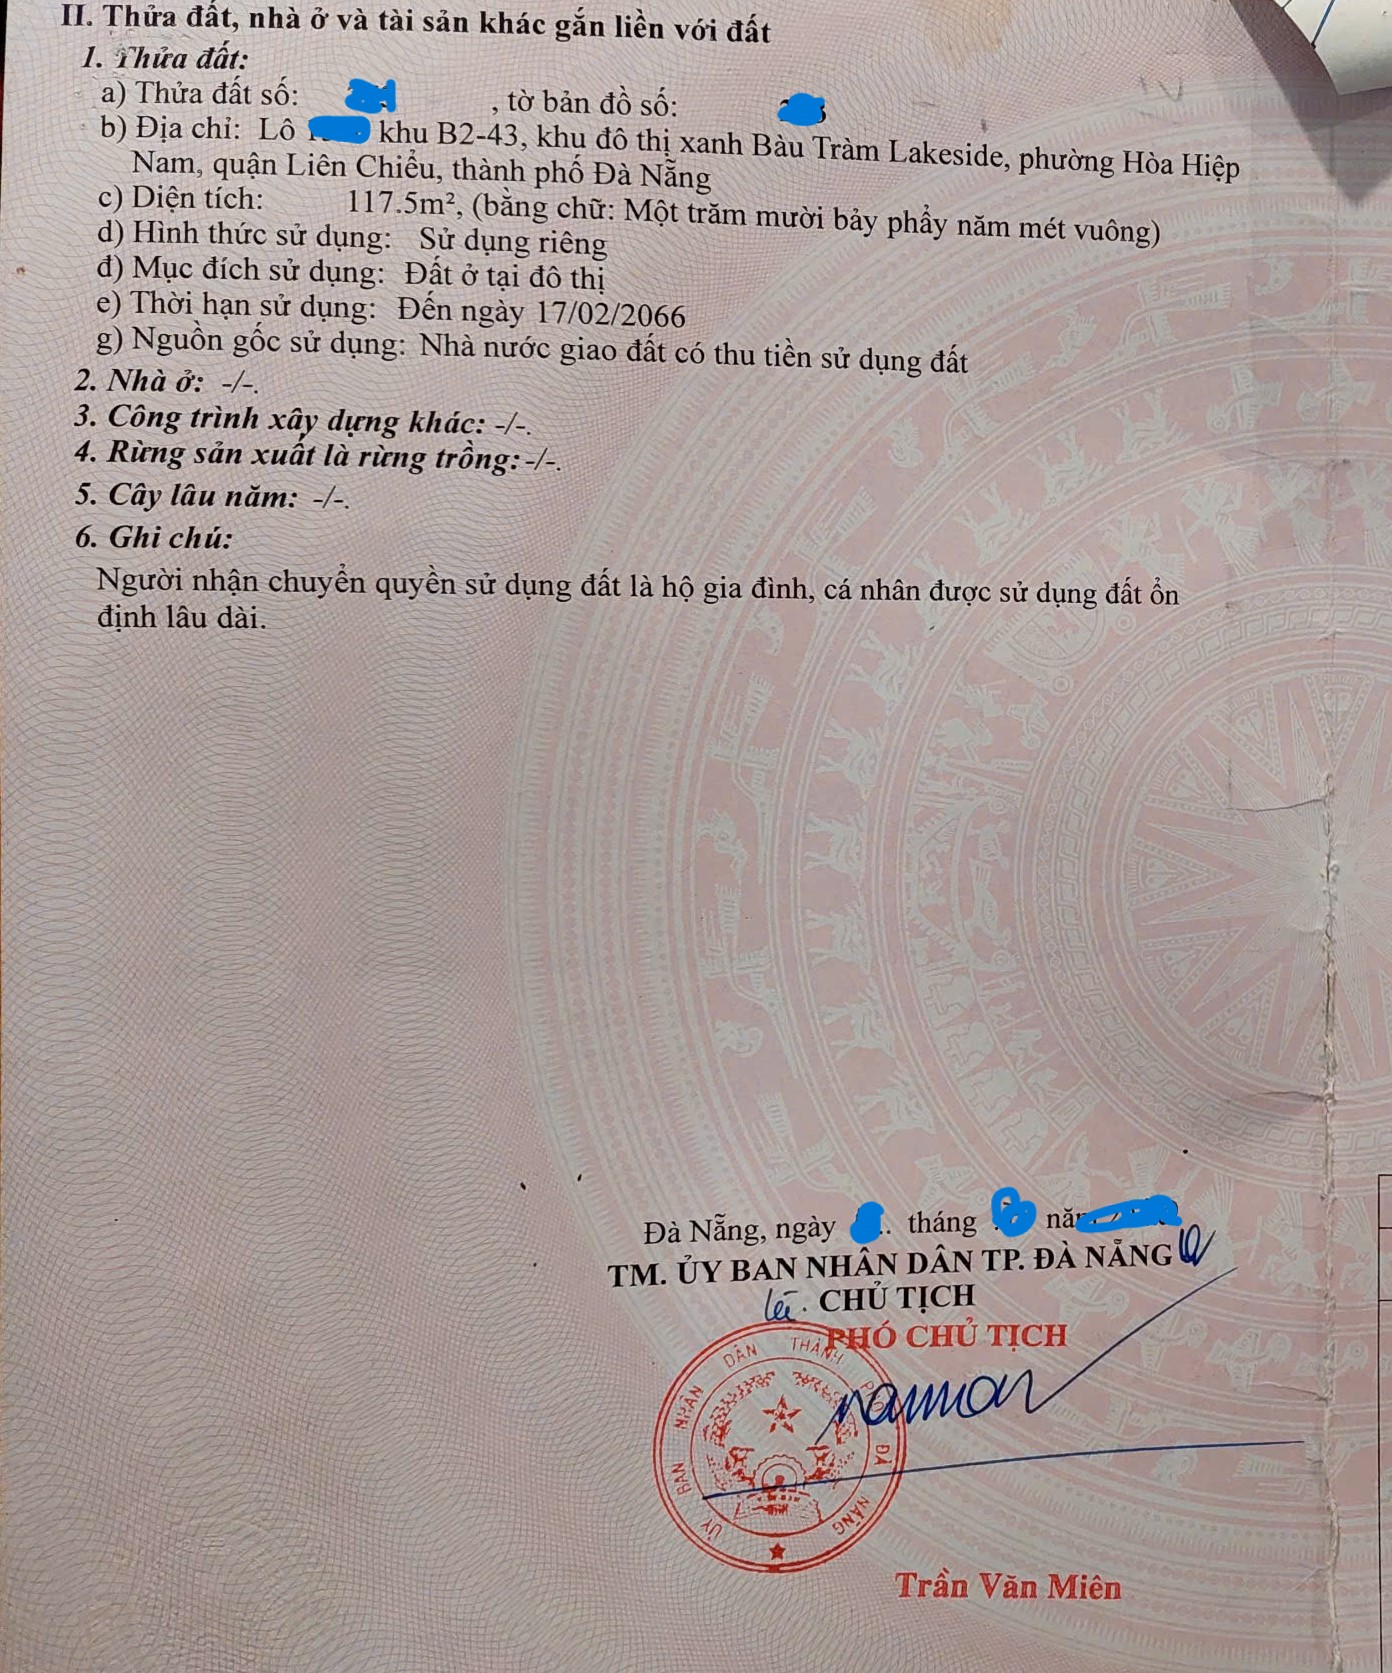 II. Thửa đất, nhà ở và tài sản khác gắn liền với đất
1. Thửa đất:
a) Thửa đất số: , tờ bản đồ số:
b) Địa chỉ: Lô khu B2-43, khu đô thị xanh Bàu Tràm Lakeside, phường Hòa Hiệp
Nam, quận Liên Chiểu, thành phố Đà Nẵng
c) Diện tích: 117.5m², (bằng chữ: Một trăm mười bảy phẩy năm mét vuông)
d) Hình thức sử dụng: Sử dụng riêng
đ) Mục đích sử dụng: Đất ở tại đô thị
e) Thời hạn sử dụng: Đến ngày 17/02/2066
g) Nguồn gốc sử dụng: Nhà nước giao đất có thu tiền sử dụng đất
2. Nhà ở: -/-.
3. Công trình xây dựng khác: -/-.
4. Rừng sản xuất là rừng trồng: -/-.
5. Cây lâu năm: -/-.
6. Ghi chú:
Người nhận chuyển quyền sử dụng đất là hộ gia đình, cá nhân được sử dụng đất ổn
định lâu dài.
Đà Nẵng, ngày tháng
TM. ỦY BAN NHÂN DÂN TP. ĐÀ NẴNG
CHỦ TỊCH
PHÓ CHỦ TỊCH
ỦY BAN NHÂN DÂN THÀNH PHỐ ĐÀ NẴNG
Trần Văn Miên